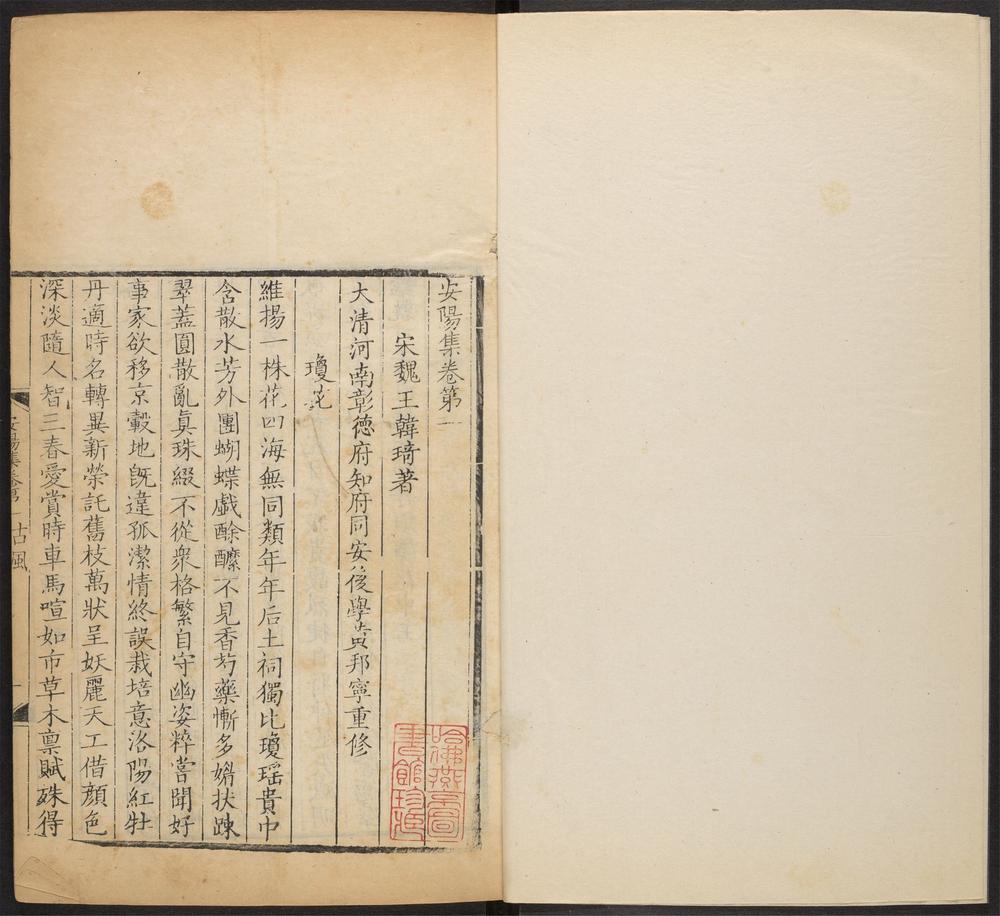 安陽集卷第一
宋魏王韓琦著
大清河南彰德府知府同安後學黃邦寧重修
瓊花
維揚一株花四海無同類年年后土祠獨比瓊瑤貴中
含散水芳外團蝴蝶戲酴醾不見香芍藥慚多媚扶踈
翠蓋圓散亂真珠綴不從衆格繁自守幽姿粹嘗聞好
事家欲移京轂地旣違孤潔情終誤栽培意洛陽紅牡
丹適時名轉異新榮託舊枝萬狀呈妖麗天工借顏色
深淡隨人智三春愛賞時車馬喧如市草木禀賦殊得
安陽集卷第一 古風 一
哈佛燕京圖
書館珍藏